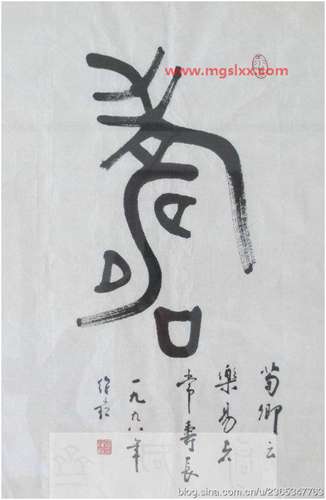 www.mgslxx.com
壽
荀卿云
樂易者
常壽長
一九九八年
blog.sina.com.cn/u/2365347763